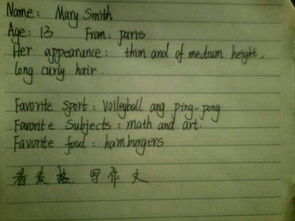 Name: Mary Smith
Age: 13 From: paris
Her appearance: thin and of medium height,
long curly hair.
Favorite Sport: Volleyball ang ping-pong
Favorite Subjects: math and art.
Favorite food: hamburgers
看表格 写作文